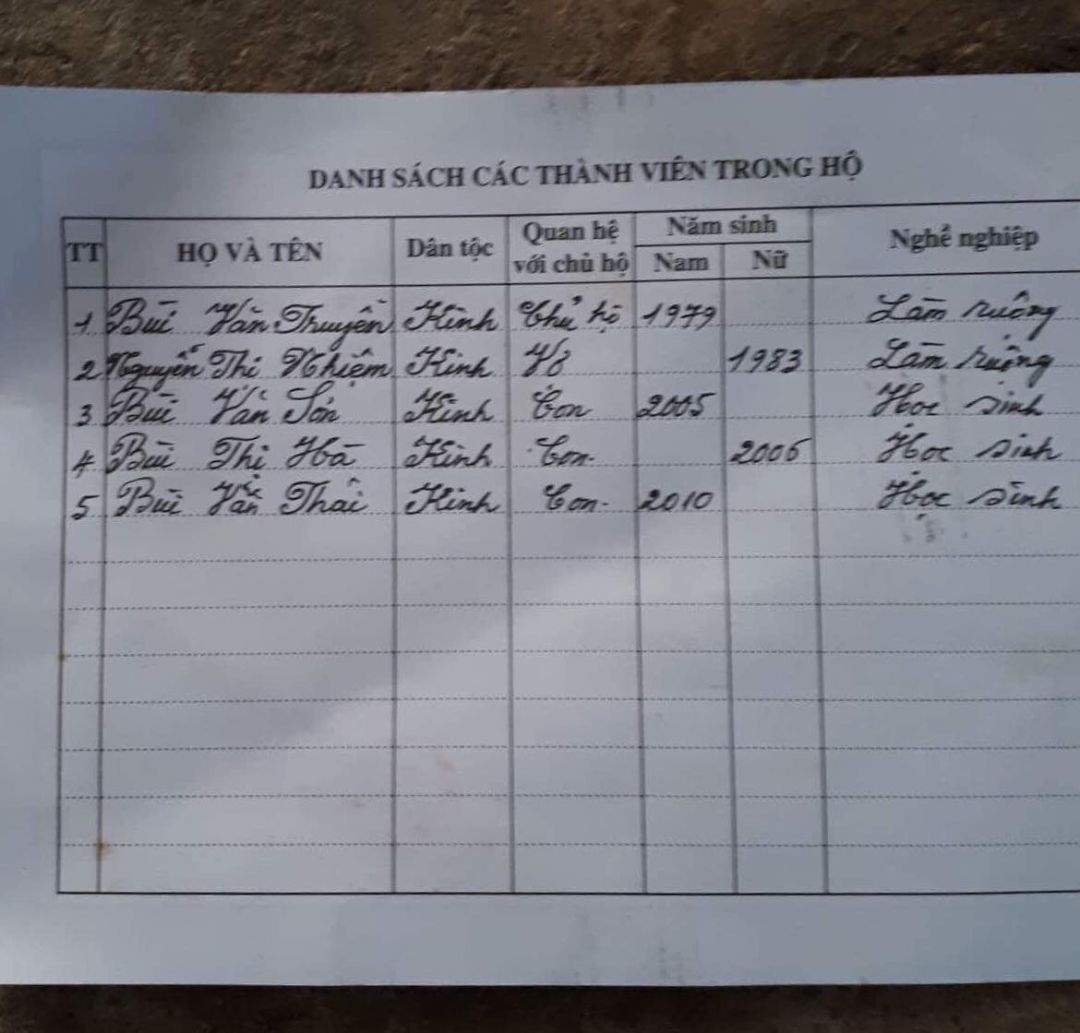 DANH SÁCH CÁC THÀNH VIÊN TRONG HỘ
TT HỌ VÀ TÊN Dân tộc Quan hệ với chủ hộ Năm sinh Nam Nữ Nghề nghiệp
1 Bùi Văn Truyền Kinh Chủ hộ 1979 Làm ruộng
2 Nguyễn Thị Nhiệm Kinh Vợ 1983 Làm ruộng
3 Bùi Văn Sơn Kinh Con 2005 Học sinh
4 Bùi Thị Hà Kinh Con 2006 Học sinh
5 Bùi Văn Thái Kinh Con 2010 Học sinh